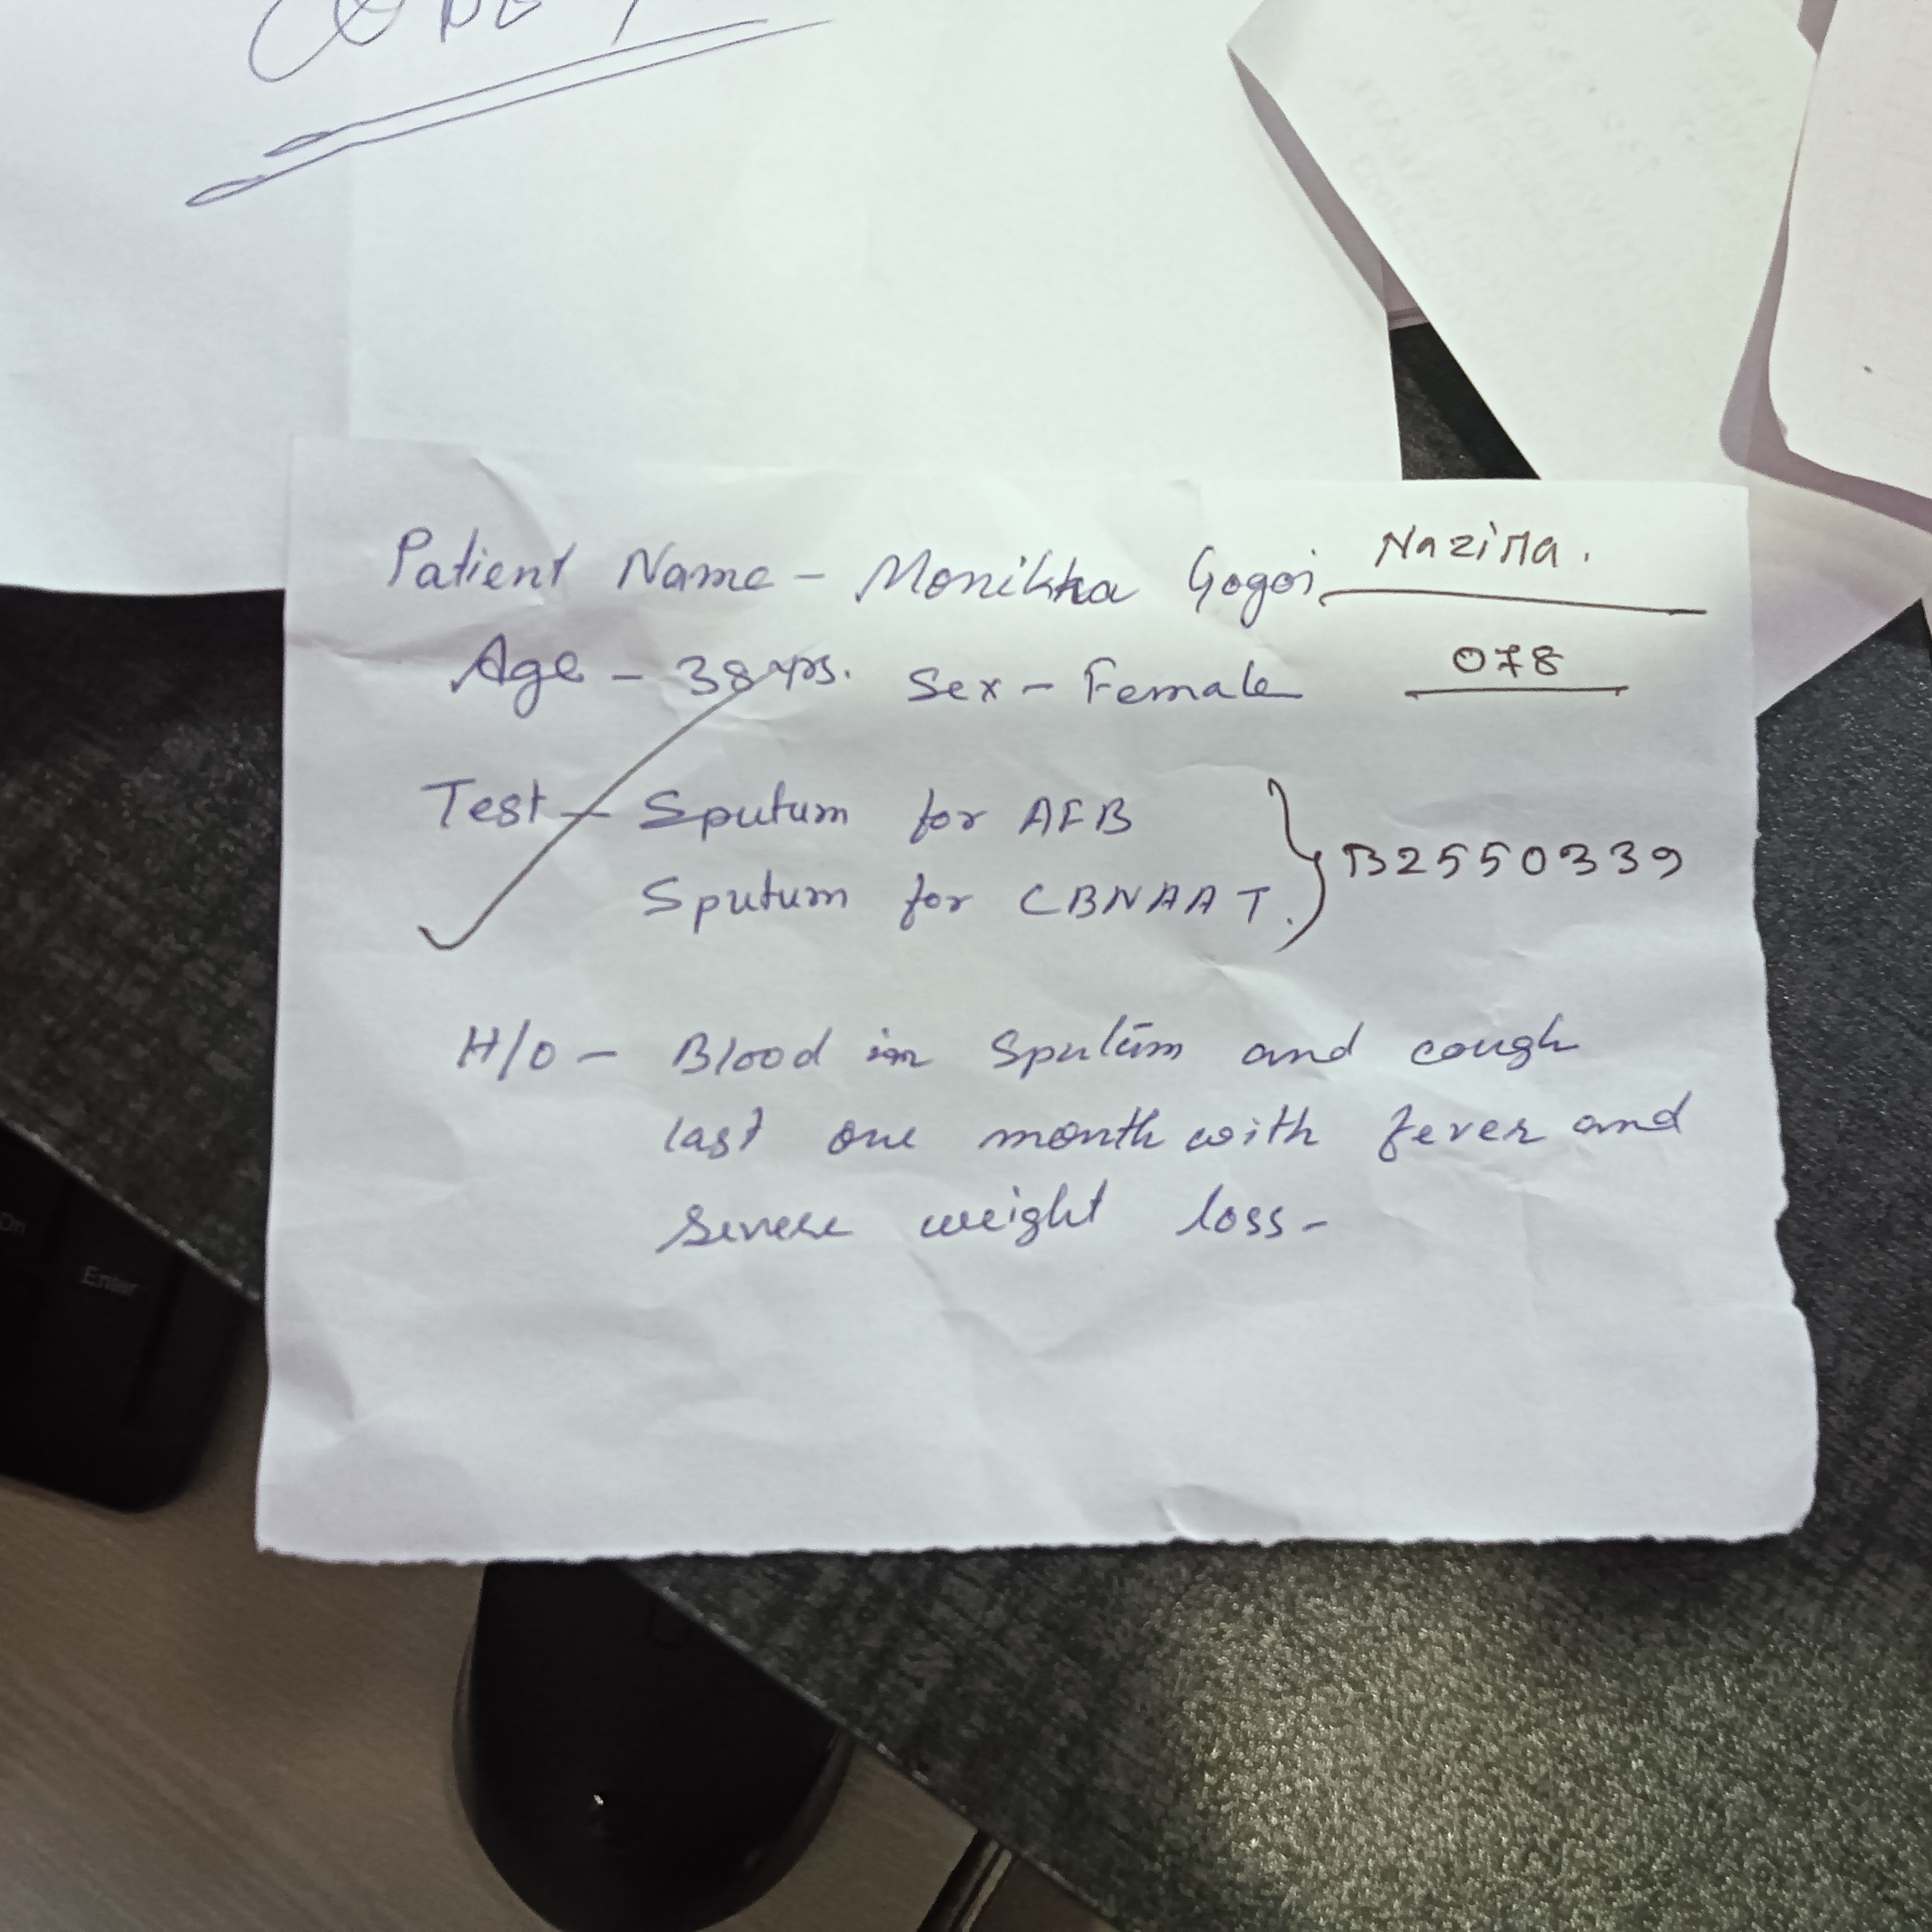 Patient Name - Monikha Gogoi Nazima.
Age - 38 yrs. Sex - Female 078
Test - Sputum for AFB
Sputum for CBNAAT. } B2550339
H/O - Blood in Sputum and cough
last one month with fever and
severe weight loss -
Enter